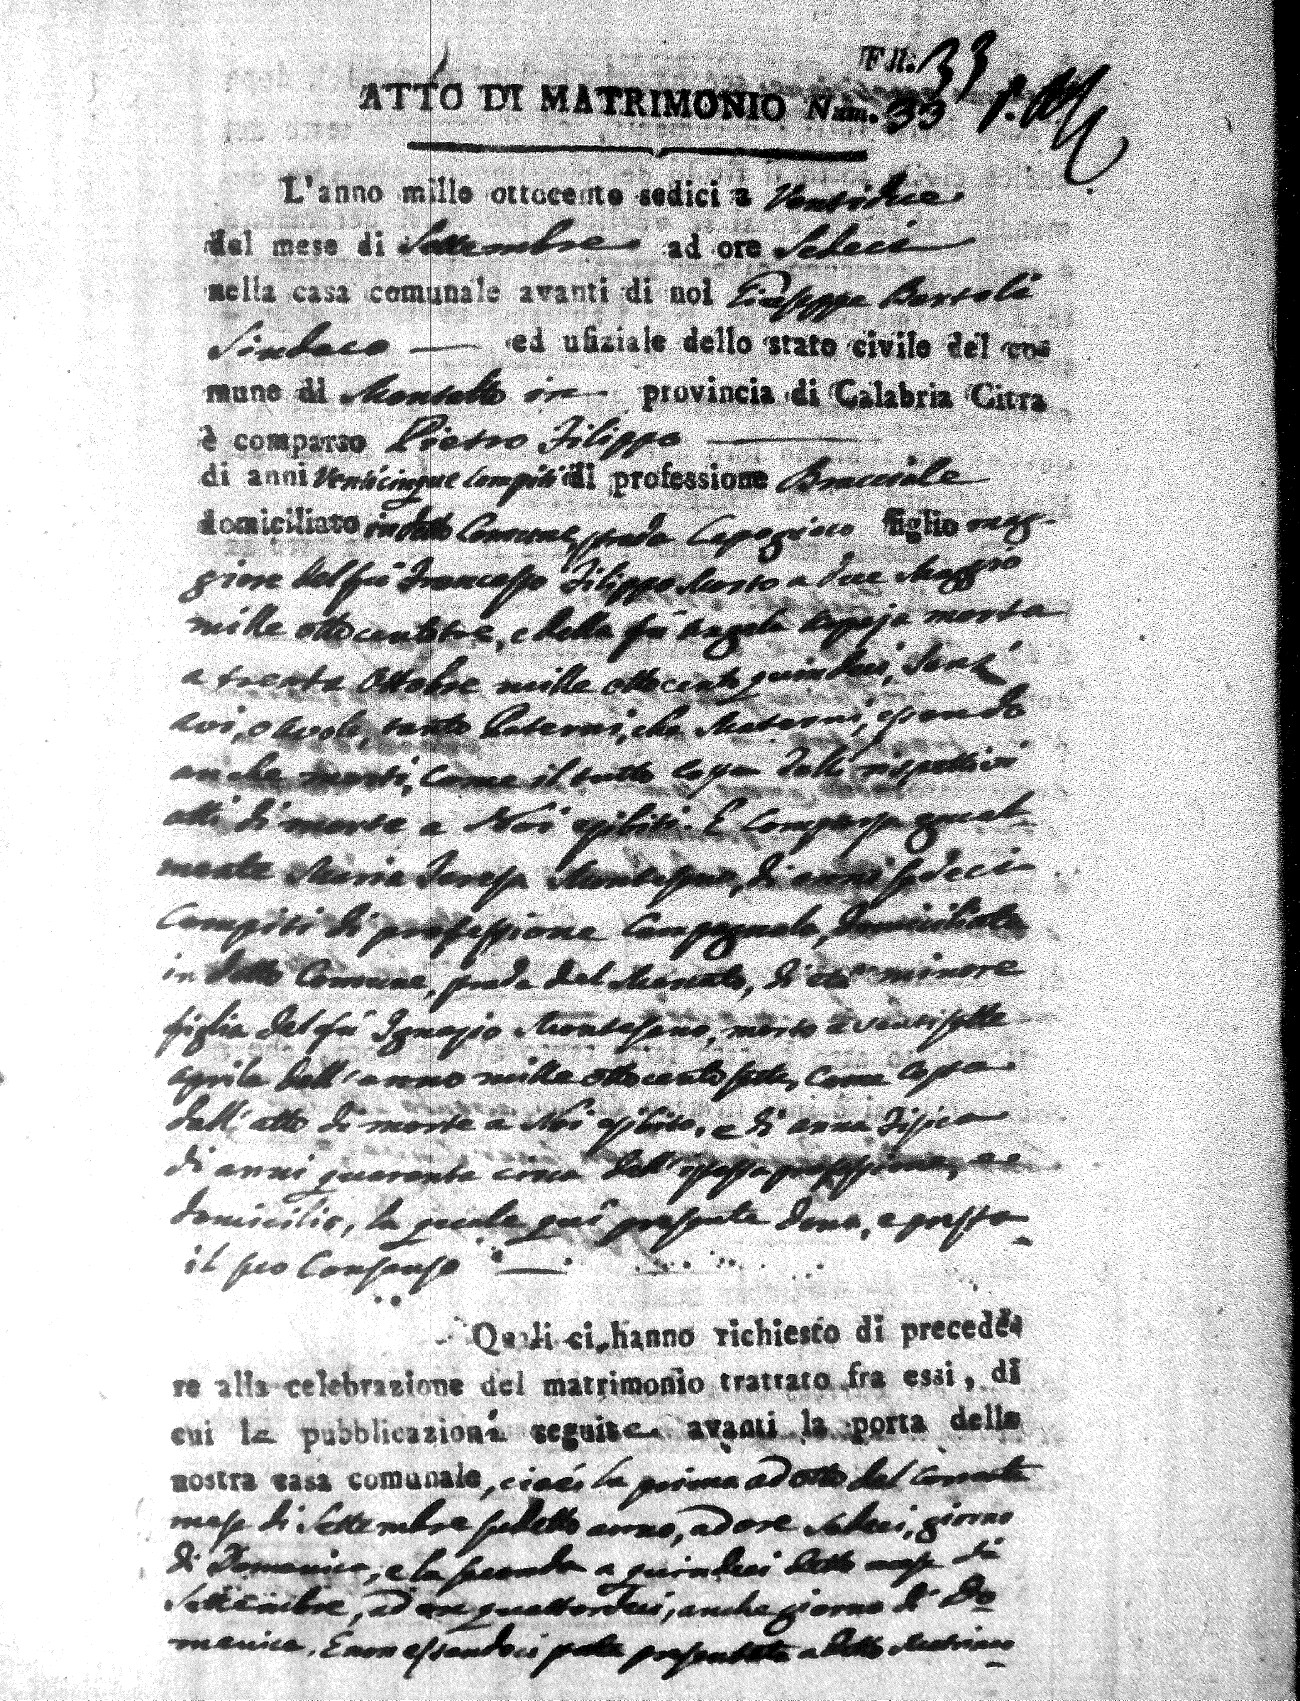 F n: 33
ATTO DI MATRIMONIO Num. 33
L'anno mille ottocento sedici a Ventidue
del mese di Settembre ad ore Sedeci
nella casa comunale avanti di noi Giuseppe Bartoli
Sindaco ed ufiziale dello stato civile del co=
mune di Montalto in provincia di Calabria Citra
è comparso Pietro Filippo
di anni Venticinque compiti di professione Bracciale
domiciliato in detto Comune, strada Capogrisso figlio mag-
giore del fu Francesco Filippo Morto a due Maggio
mille ottocentotre, e della fu morta
a trenta Ottobre mille ottocento quindeci, senz'
avi, o Avole, tanto Paterni, che Materni, essendo
anche morti, come il tutto costa dalli rispettivi
atti di morte a Noi esibiti. È comparsa egual-
mente Maria Teresa Montesano, di anni sedeci
Compiti di professione Campagnola, domiciliata
in detto Comune, strada del Mercato, di età minore
figlia del fu Ignazio Montesano, morto a ventisette
aprile dell'anno mille ottocento sette, come costa
dall'atto di morte a Noi esibito, e di anna
di anni quaranta circa dell'istessa professione, e
domicilio, la quale quì presente dona, e presta
il suo Consenso
Quali ci hanno richiesto di procede=
re alla celebrazione del matrimonio trattato fra essi, di
cui le pubblicazioni seguite avanti la porta della
nostra casa comunale, cioè: la prima ad otto del corrente
mese di Settembre sudetto anno, ad ore Sedeci, giorno
di Domenica, e la seconda a quindeci detto mese di
Settembre, ad ore quattordeci, anche giorno di Do=
menica. E non essendoci stata presentata a detto Matrimo